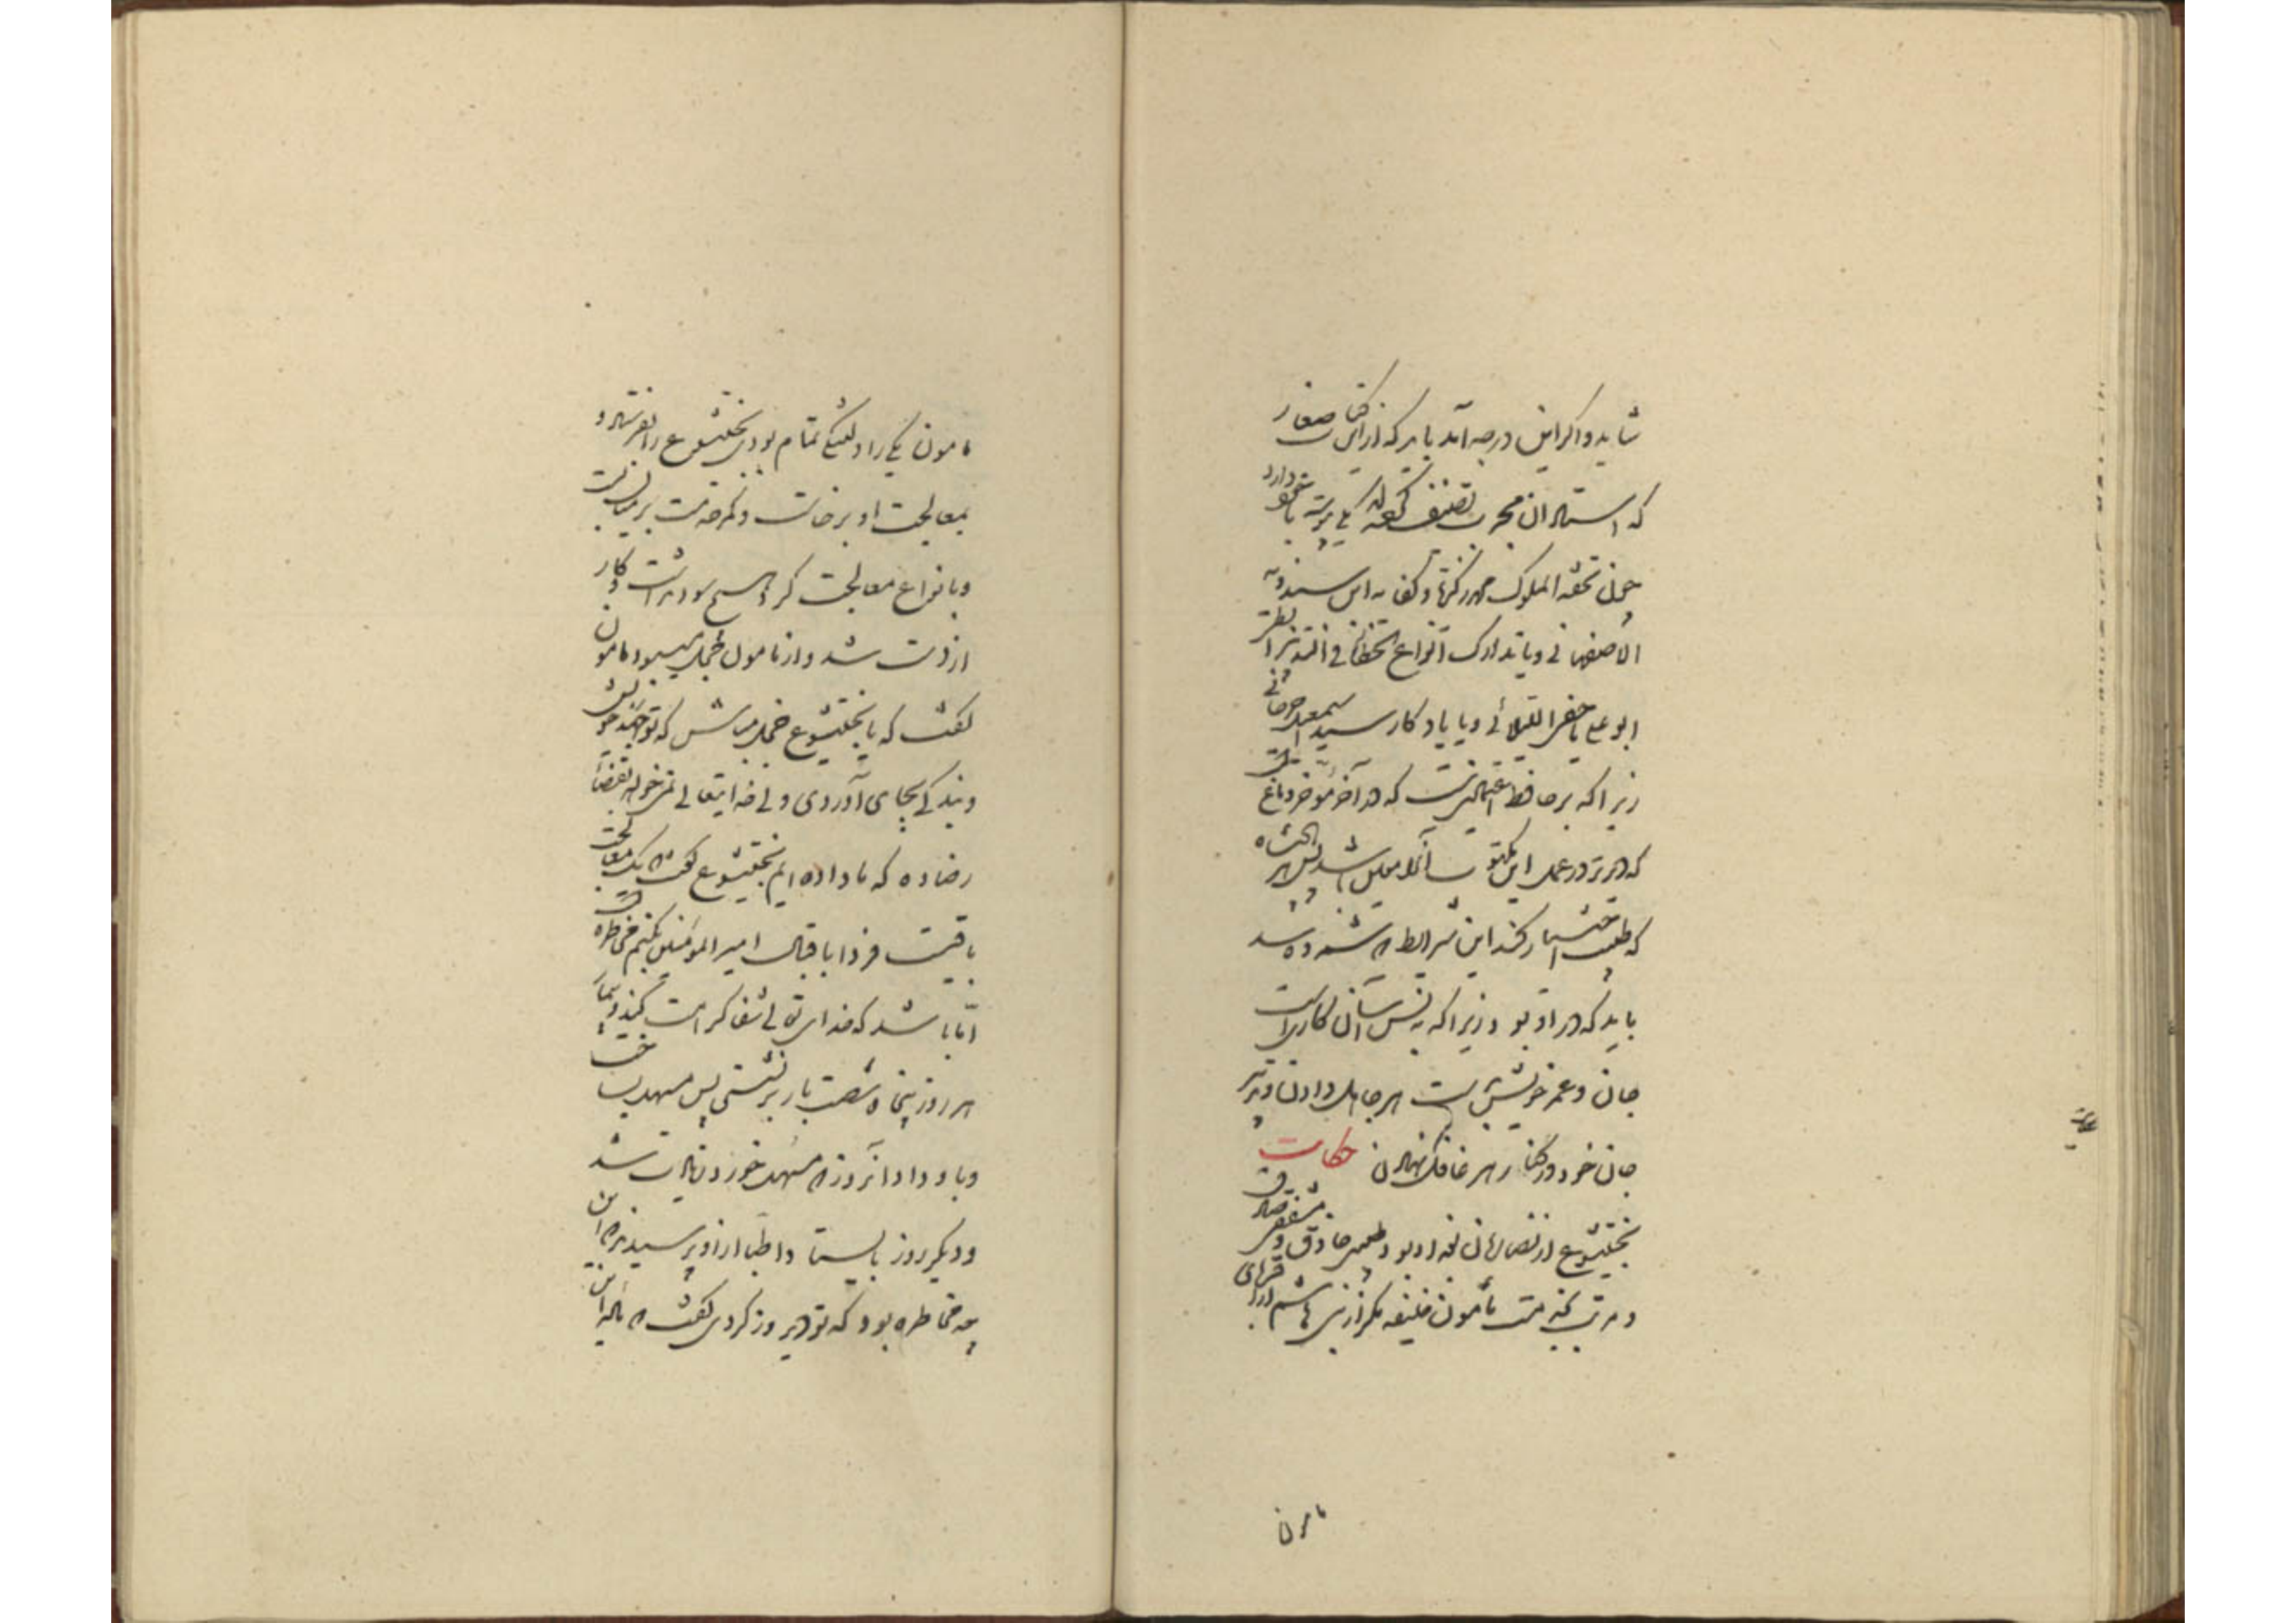 شاید و اگر این درجه آید باید که ازین کتب صغار
که استادان مجرب تصنیف کرده‌اند یکی پیوسته با خود دارد
چون تحفة الملوک محمد زکریا و کفایه ابن مندویه
الاصفهانی و یا تدارک انواع الخطا فی التدبیر
ابو علی یا خفی العلائی و یا یادکار سید اسمعیل جرجانی
زیرا که بر حافظه اعتمادی نیست که در آخر مؤخر دماغ
که دیرتر در عمل این مکتوب آنرا معین باشد پس هر پادشاه
که طبیب اختیار کند این شرایط که شمرده شد
باید که در او بود زیرا که نه بس آسان کاریست
جان و عمر خویش بدست هر جاهل دادن و تدبیر
جان خود در کنار هر غافل نهادن حکایت
بختیشوع از نصارای بغداد بود طبیبی حاذق و مشفقی صادق
و مرتب بخدمت مأمون خلیفه مکر از بنی هاشم از اقربای
مامون
مامون یکی را دلتنکی تمام بود بختیشوع را بفرستاد و
بمعالجت او برخاست و کمر خدمت بر میان بست
و بانواع معالجت کرد هیچ سود نداشت و کار
از دست شد و از مامون خجل میبود مامون
گفت که یا بختیشوع خجل مباش که تو جهد خویش
و بندکی بجای آوردی ولی خدای تعالی نمیخواهد بقضا
رضا ده که ما داده‌ایم بختیشوع گفت یک معالجت
باقیست فردا باقبال امیر المؤمنین بکنم مخاطره
اما باشد که خدای تعالی شفا کرامت کند و بیمار
هر روز پنجاه شصت بار برنشستی پس مسهل بساخت
و باو داد آنروز که مسهل خورد زیادت شد
و دیکر روز بایستاد اطبا ازو پرسیدند که این
چه مخاطره بود که تو دیروز کردی گفت که ماده این